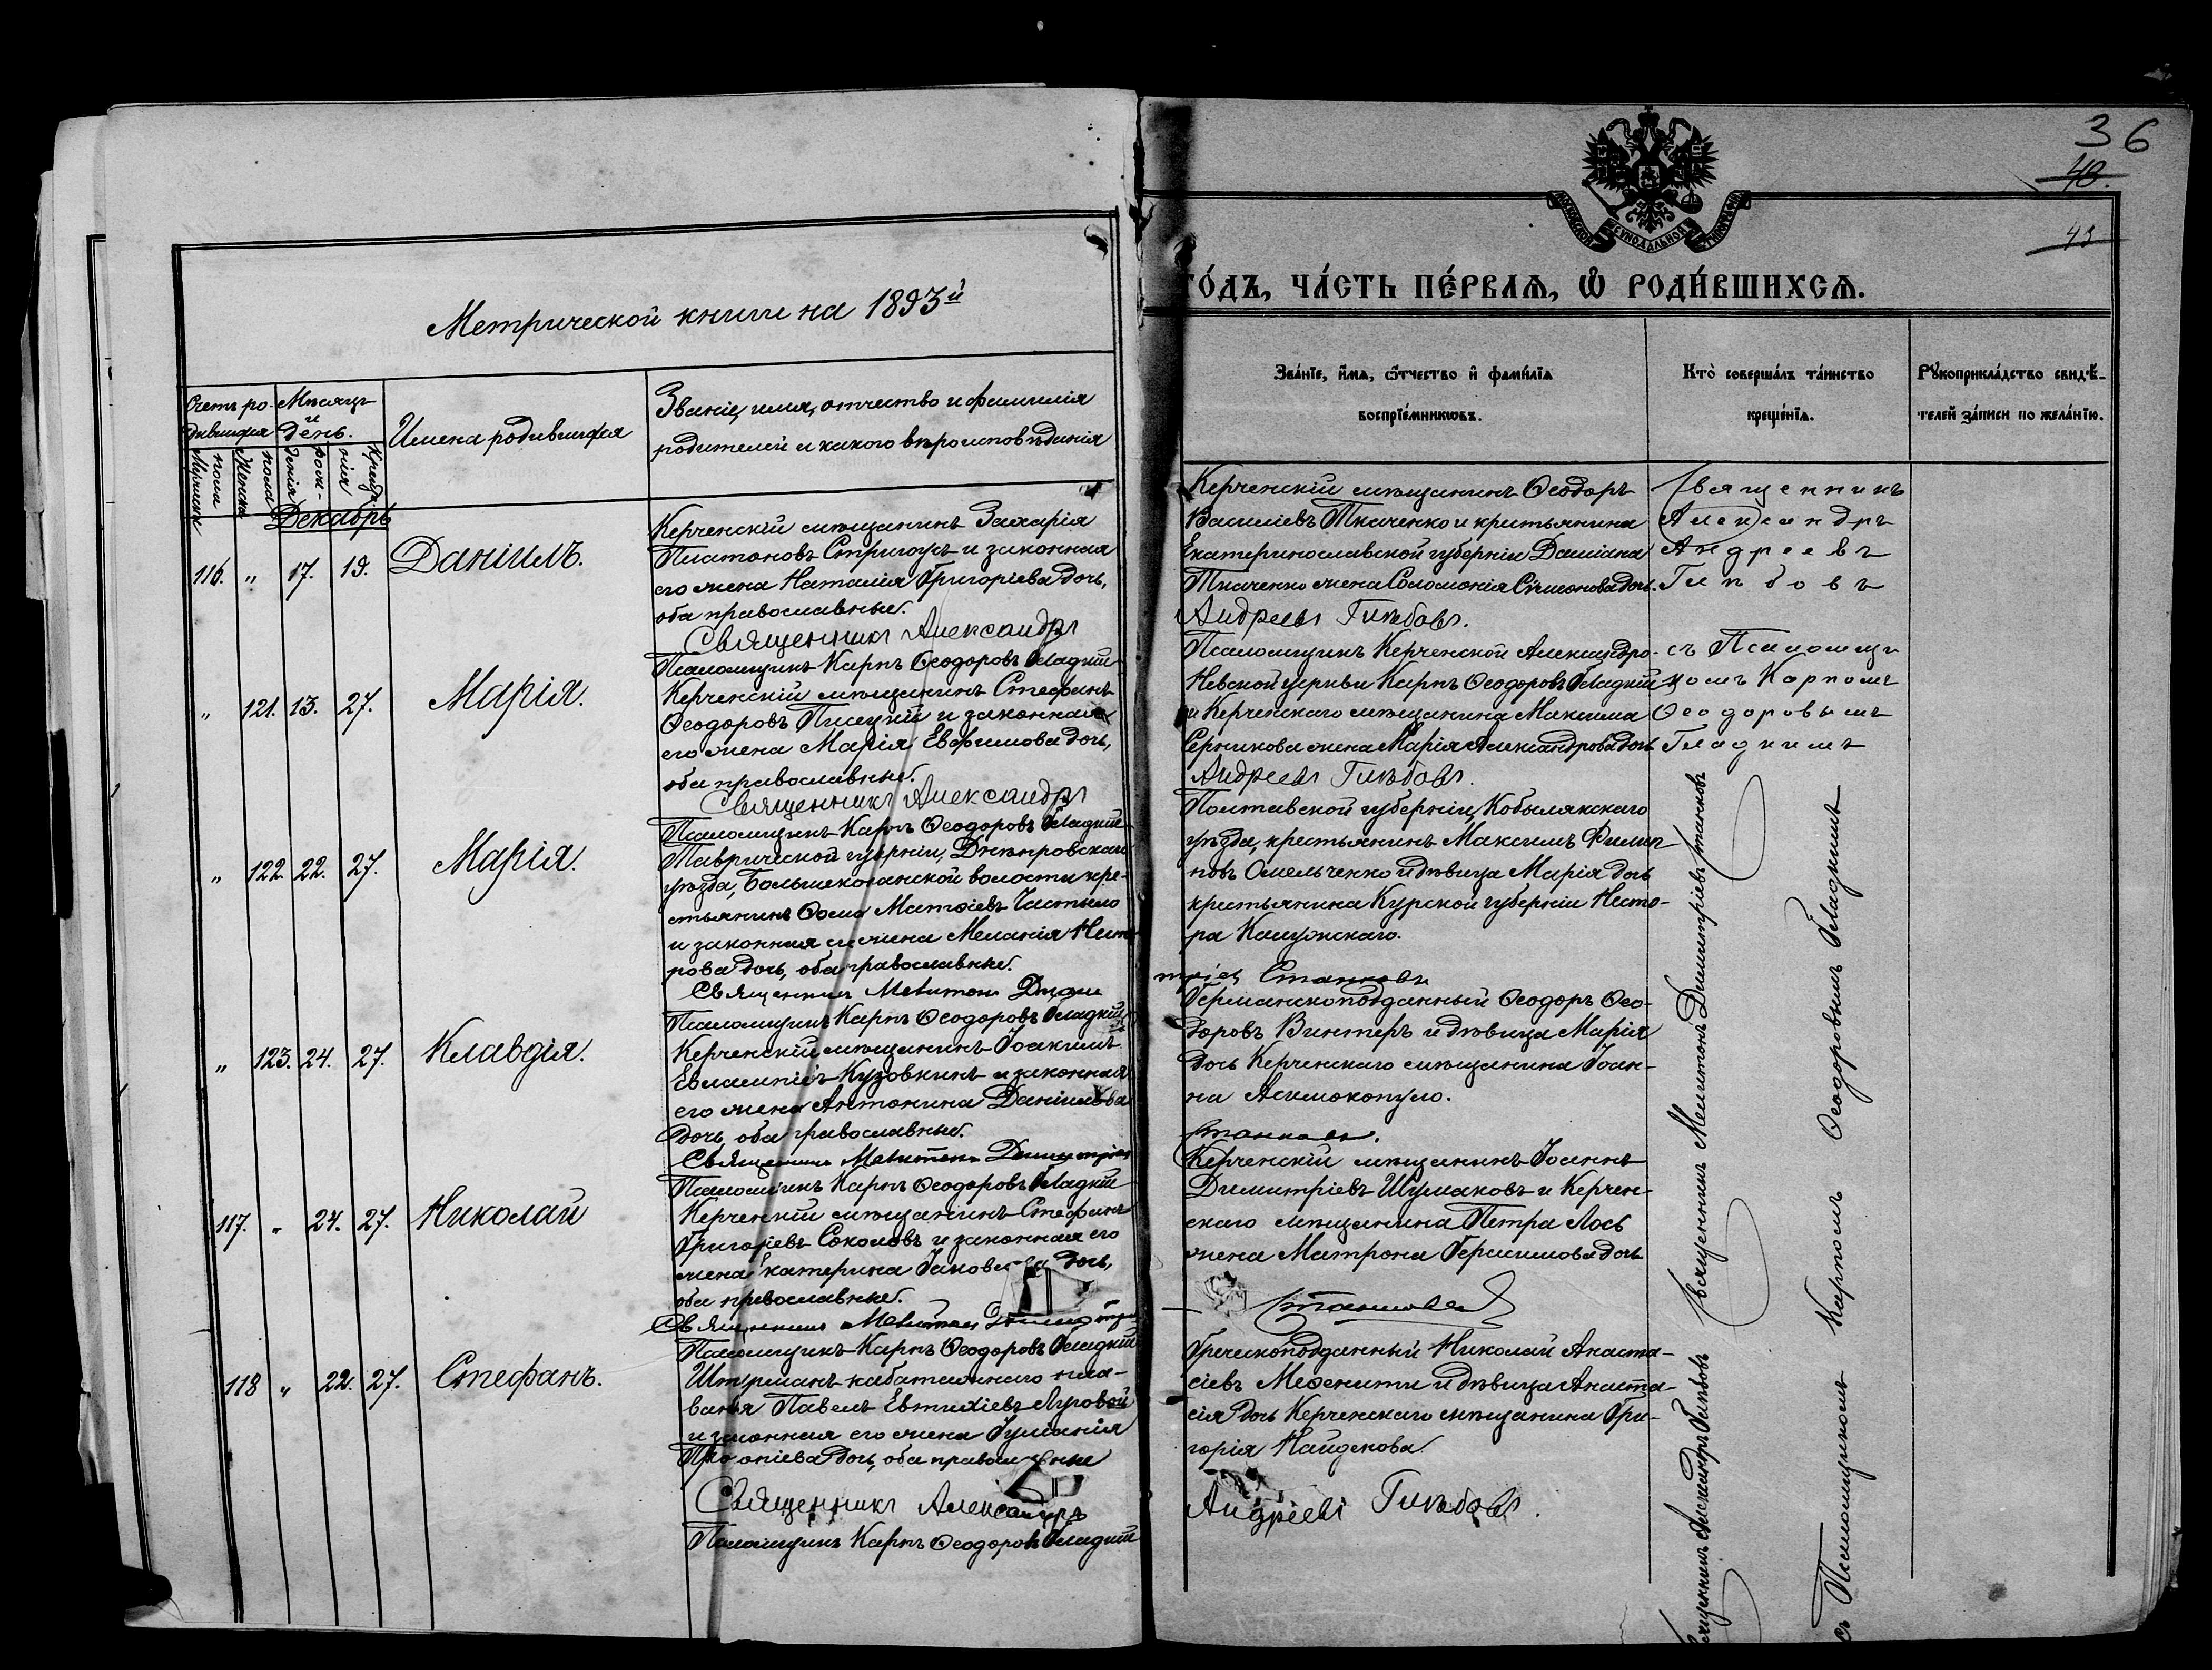 36
40.
43
Метрической книги на 1893й
годъ, часть первая, ѡ родившихся.
Счетъ родившихся
Мѣсяцъ и день.
Имена родившихся
Званіе, имя, отчество и фамилія
родителей и какого вѣроисповѣданія
Званіе, имя, ѿчество и фамилія
воспріемниковъ.
Кто совершалъ таинство
крещенія.
Рукоприкладство свидѣ-
телей записи по желанію.
Мужеска пола
Женска пола
рожденія
Крещенія
Декабрь
116. „ 17. 19. Даніилъ.
Керченскій мѣщанинъ Захарія
Платоновъ Стригоусъ и законная
его жена Наталія Григоріева дочь,
оба православные.
Священникъ Александръ
Псаломщикъ Карпъ Ѳеодоровъ Гладкій
Керченскій мѣщанинъ Ѳеодоръ
Василіевъ Ткаченко и крестьянина
Екатеринославской губерніи Даміана
Ткаченко жена Соломонія Сѵмеонова дочь.
Андреевъ Глѣбовъ.
Священникъ
Александръ
Андреевъ
Глѣбовъ
съ Псаломщи
комъ Карпомъ
Ѳеодоровымъ
Гладкимъ
„ 121. 13. 27. Марія.
Керченскій мѣщанинъ Стефанъ
Ѳеодоровъ Писцкій и законная
его жена Марія Евфимова дочь,
оба православные.
Священникъ Александръ
Псаломщикъ Карпъ Ѳеодоровъ Гладкій
Псаломщикъ Керченской Александро-
Невской церкви Карпъ Ѳеодоровъ Гладкій
и Керченскаго мѣщанина Максима
Серникова жена Марія Александрова дочь
Андреевъ Глѣбовъ.
„ 122. 22. 27. Марія.
Таврической губерніи, Днѣпровскаго
уѣзда, Большекопанской волости кре-
стьянинъ Ѳома Матѳіевъ Частыло
и законная его жена Меланія Несто-
рова дочь, оба православные.
Священникъ Мелитонъ Дими
Псаломщикъ Карпъ Ѳеодоровъ Гладкій
Полтавской губерніи, Кобылякскаго
уѣзда, крестьянинъ Максимъ Филип-
повъ Омельченко и дѣвица Марія дочь
крестьянина Курской губерніи Несто-
ра Калужскаго.
тріев Станковъ
„ 123. 24. 27. Клавдія.
Керченскій мѣщанинъ Іоакимъ
Евлампіевъ Кузовкинъ и законная
его жена Антонина Даніилова
дочь, оба православные.
Священникъ Мелитонъ Димитріев
Псаломщикъ Карпъ Ѳеодоровъ Гладкій
Германскоподданный Ѳеодоръ Ѳео-
доровъ Винтеръ и дѣвица Марія
дочь Керченскаго мѣщанина Іоан-
на Алимокопуло.
Станковъ.
117. „ 24. 27. Николай
Керченскій мѣщанинъ Стефанъ
Григоріевъ Соколовъ и законная его
жена катерина Іаковлева дочь,
оба православные.
Священникъ Мелитонъ Димитрі
Псаломщикъ Карпъ Ѳеодоровъ Гладкій
Керченскій мѣщанинъ Іоаннъ
Димитріевъ Шумаковъ и Керчен-
скаго мѣщанина Петра Лось
жена Матрона Герасимова дочь
Станковъ
118 „ 22. 27. Стефанъ.
Штурманъ каботажнаго пла-
ванья Павелъ Евтихіевъ Луровой
и законная его жена Іуліанія
Прокопіева дочь, оба православные
Священникъ Александръ
Псаломщикъ Карпъ Ѳеодоровъ Гладкій
Греческоподданный Николай Анаста-
сіевъ Меѳенити и дѣвица Анаста-
сія дочь Керченскаго мѣщанина Гри-
горія Найденова.
Андреевъ Глѣбовъ.
Священникъ Александръ Глѣбовъ
Священникъ Мелитонъ Димитріевъ Станковъ
съ Псаломщикомъ Карпомъ Ѳеодоровымъ Гладкимъ